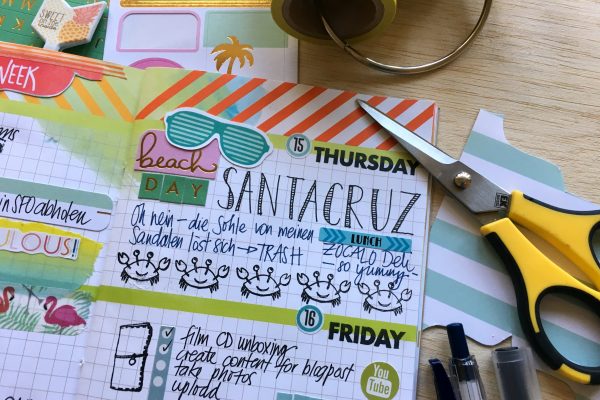 SWEET
WEEK
in SFO abholen
ULOUS!
15
THURSDAY
beach
DAY
SANTACRUZ
Oh nein – die Sohle von meinen
Sandalen löst sich → TRASH
LUNCH
ZOCALO Deli
so yummy
16
FRIDAY
film CD unboxing
create content for blogpost
take photos
upload
You
Tube